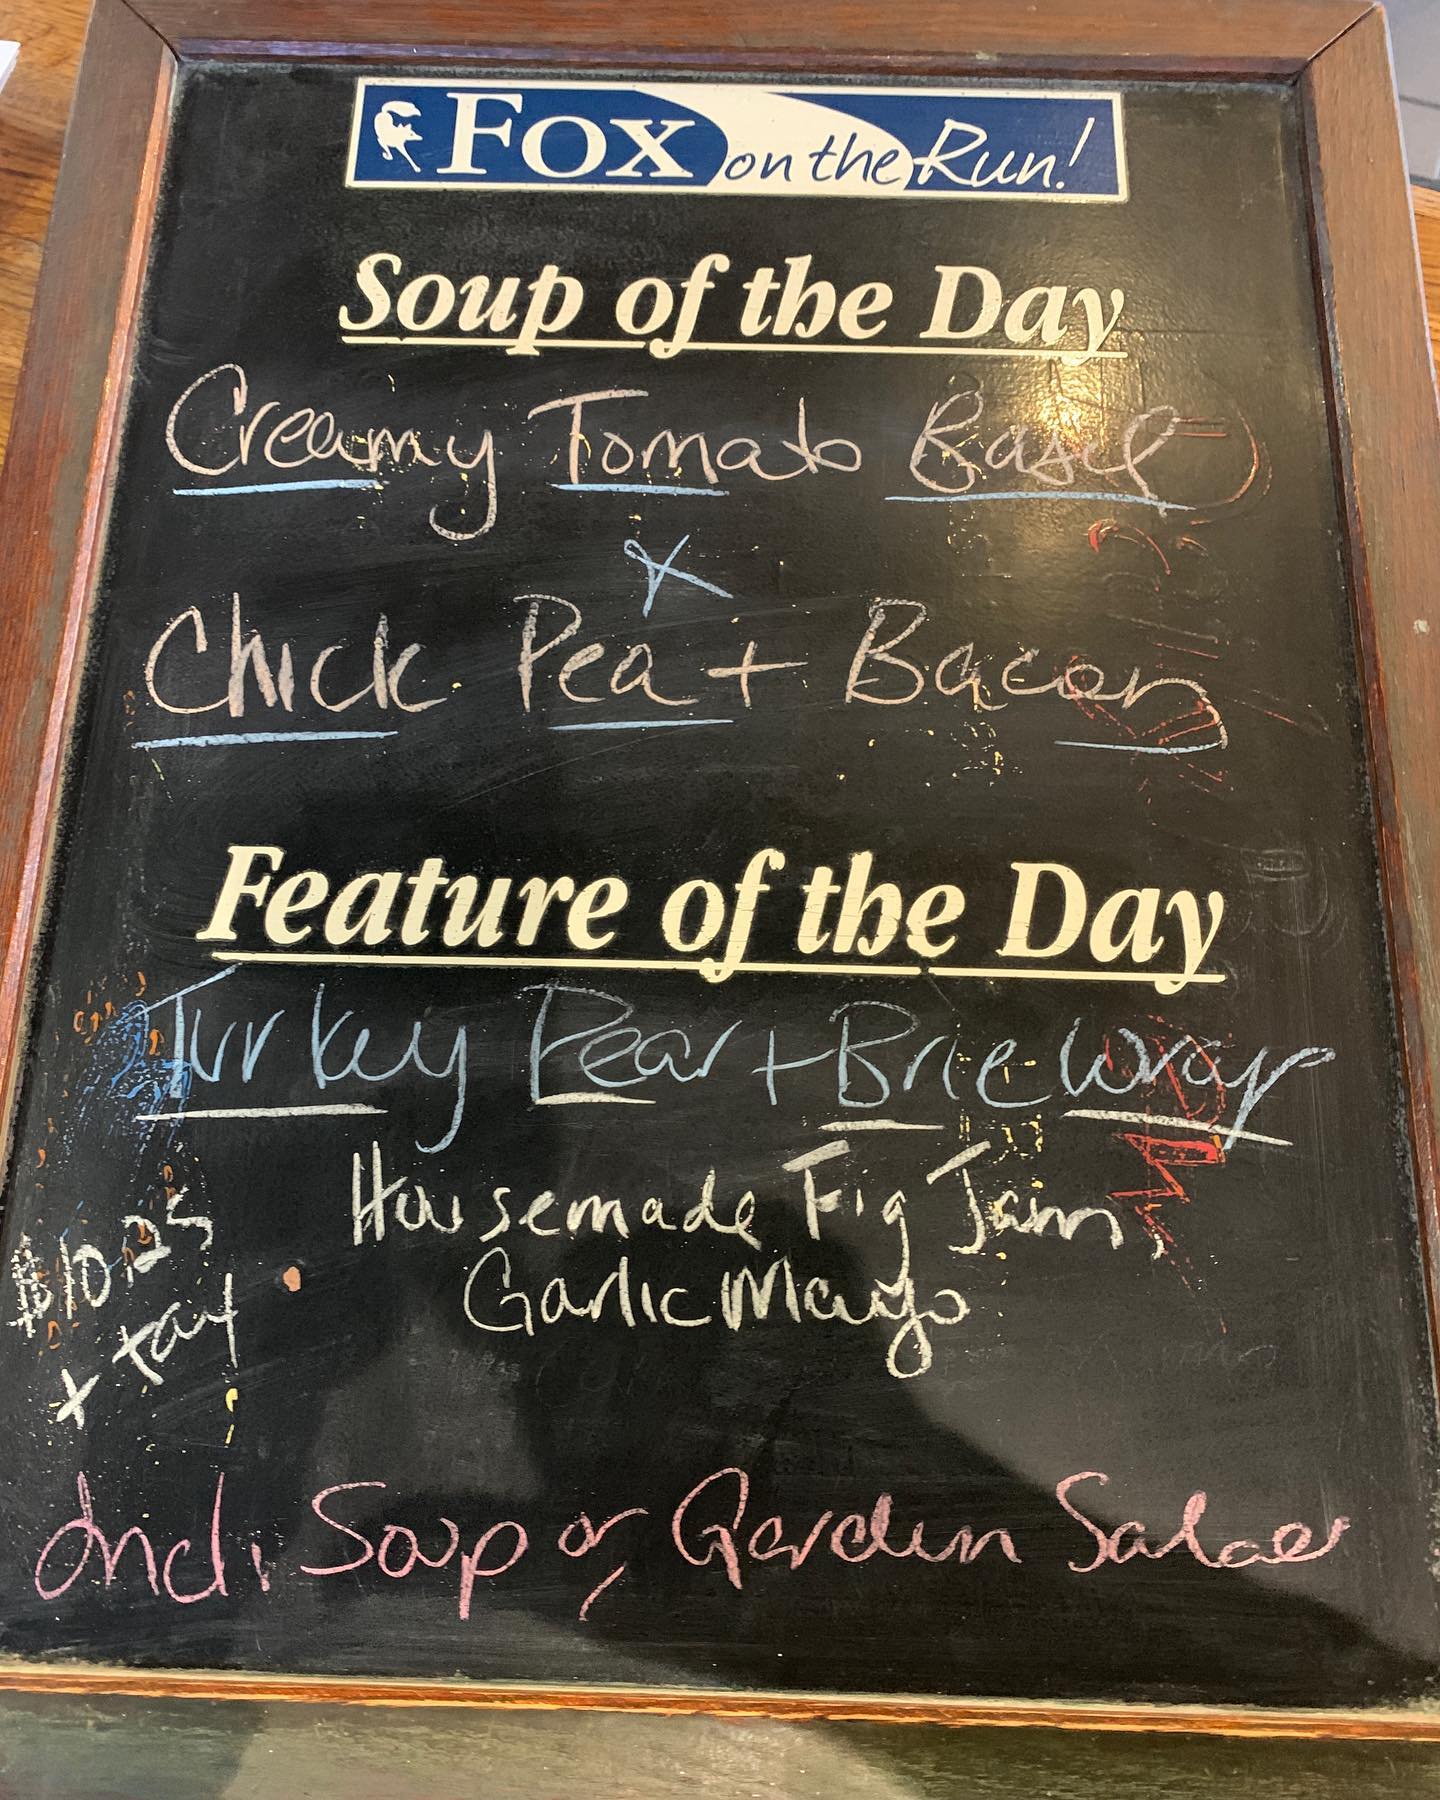 Fox on the Run!
Soup of the Day
Creamy Tomato Basil
&
Chick Pea + Bacon
Feature of the Day
Turkey Pear + Brie Wrap
Housemade Fig Jam,
Garlic Mayo
$10.25
+ tax
Incl. Soup or Garden Salad